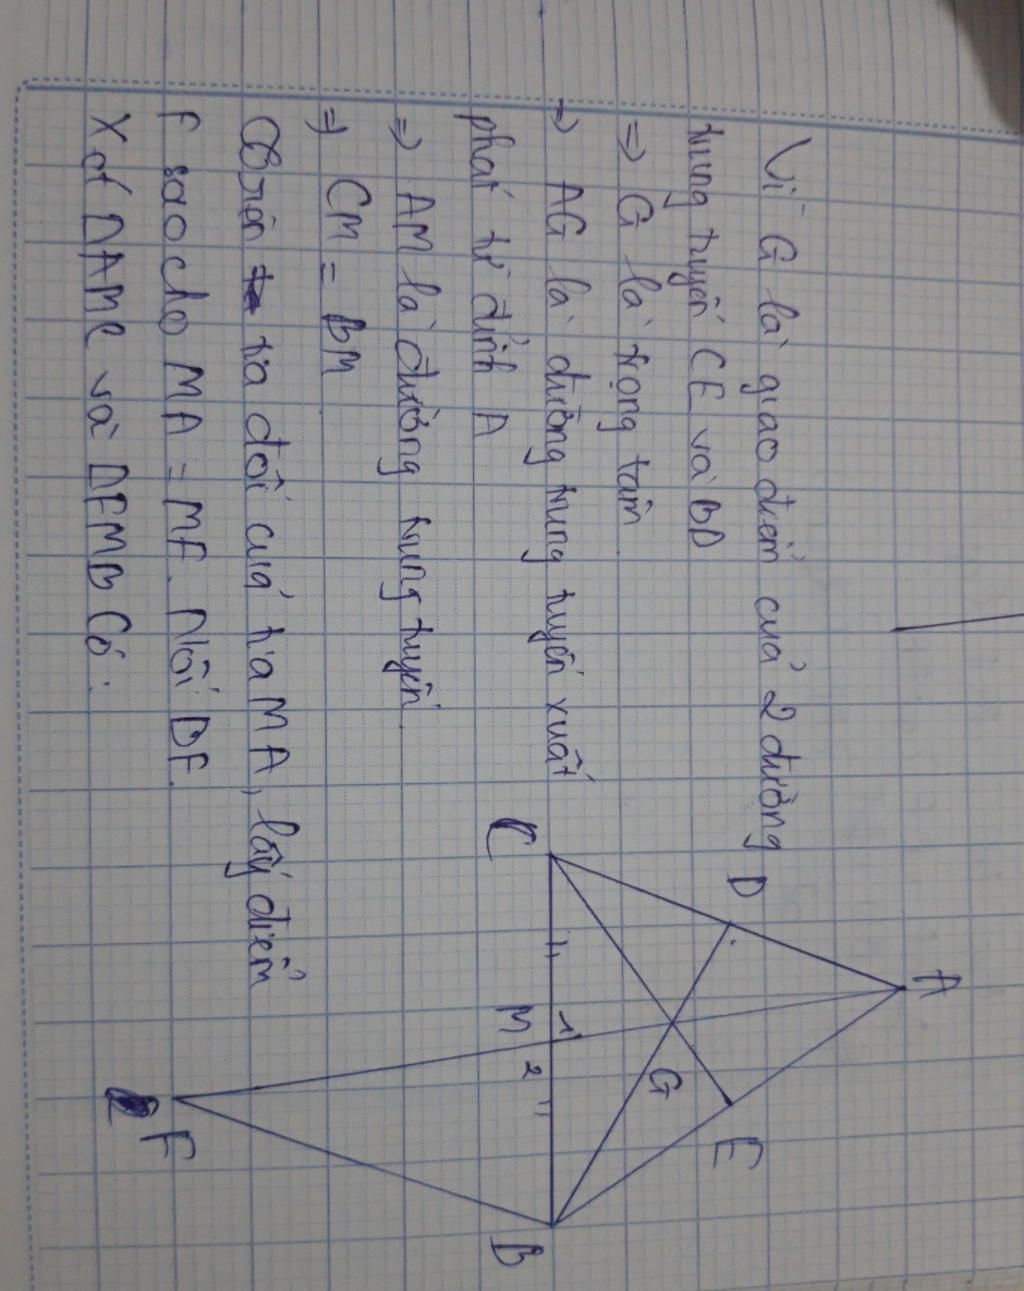 Vì G là giao điểm của 2 đường
trung tuyến CE và BD
=) G là trọng tâm
=) AG là đường trung tuyến xuất
phát từ đỉnh A
=) AM là đường trung tuyến.
=) CM = BM
Trên tia đối của tia MA, lấy điểm
F sao cho MA = MF. Nối BF.
Xét ΔAMC và ΔFMB Có:
A
D
E
G
C
M
1
2
B
F